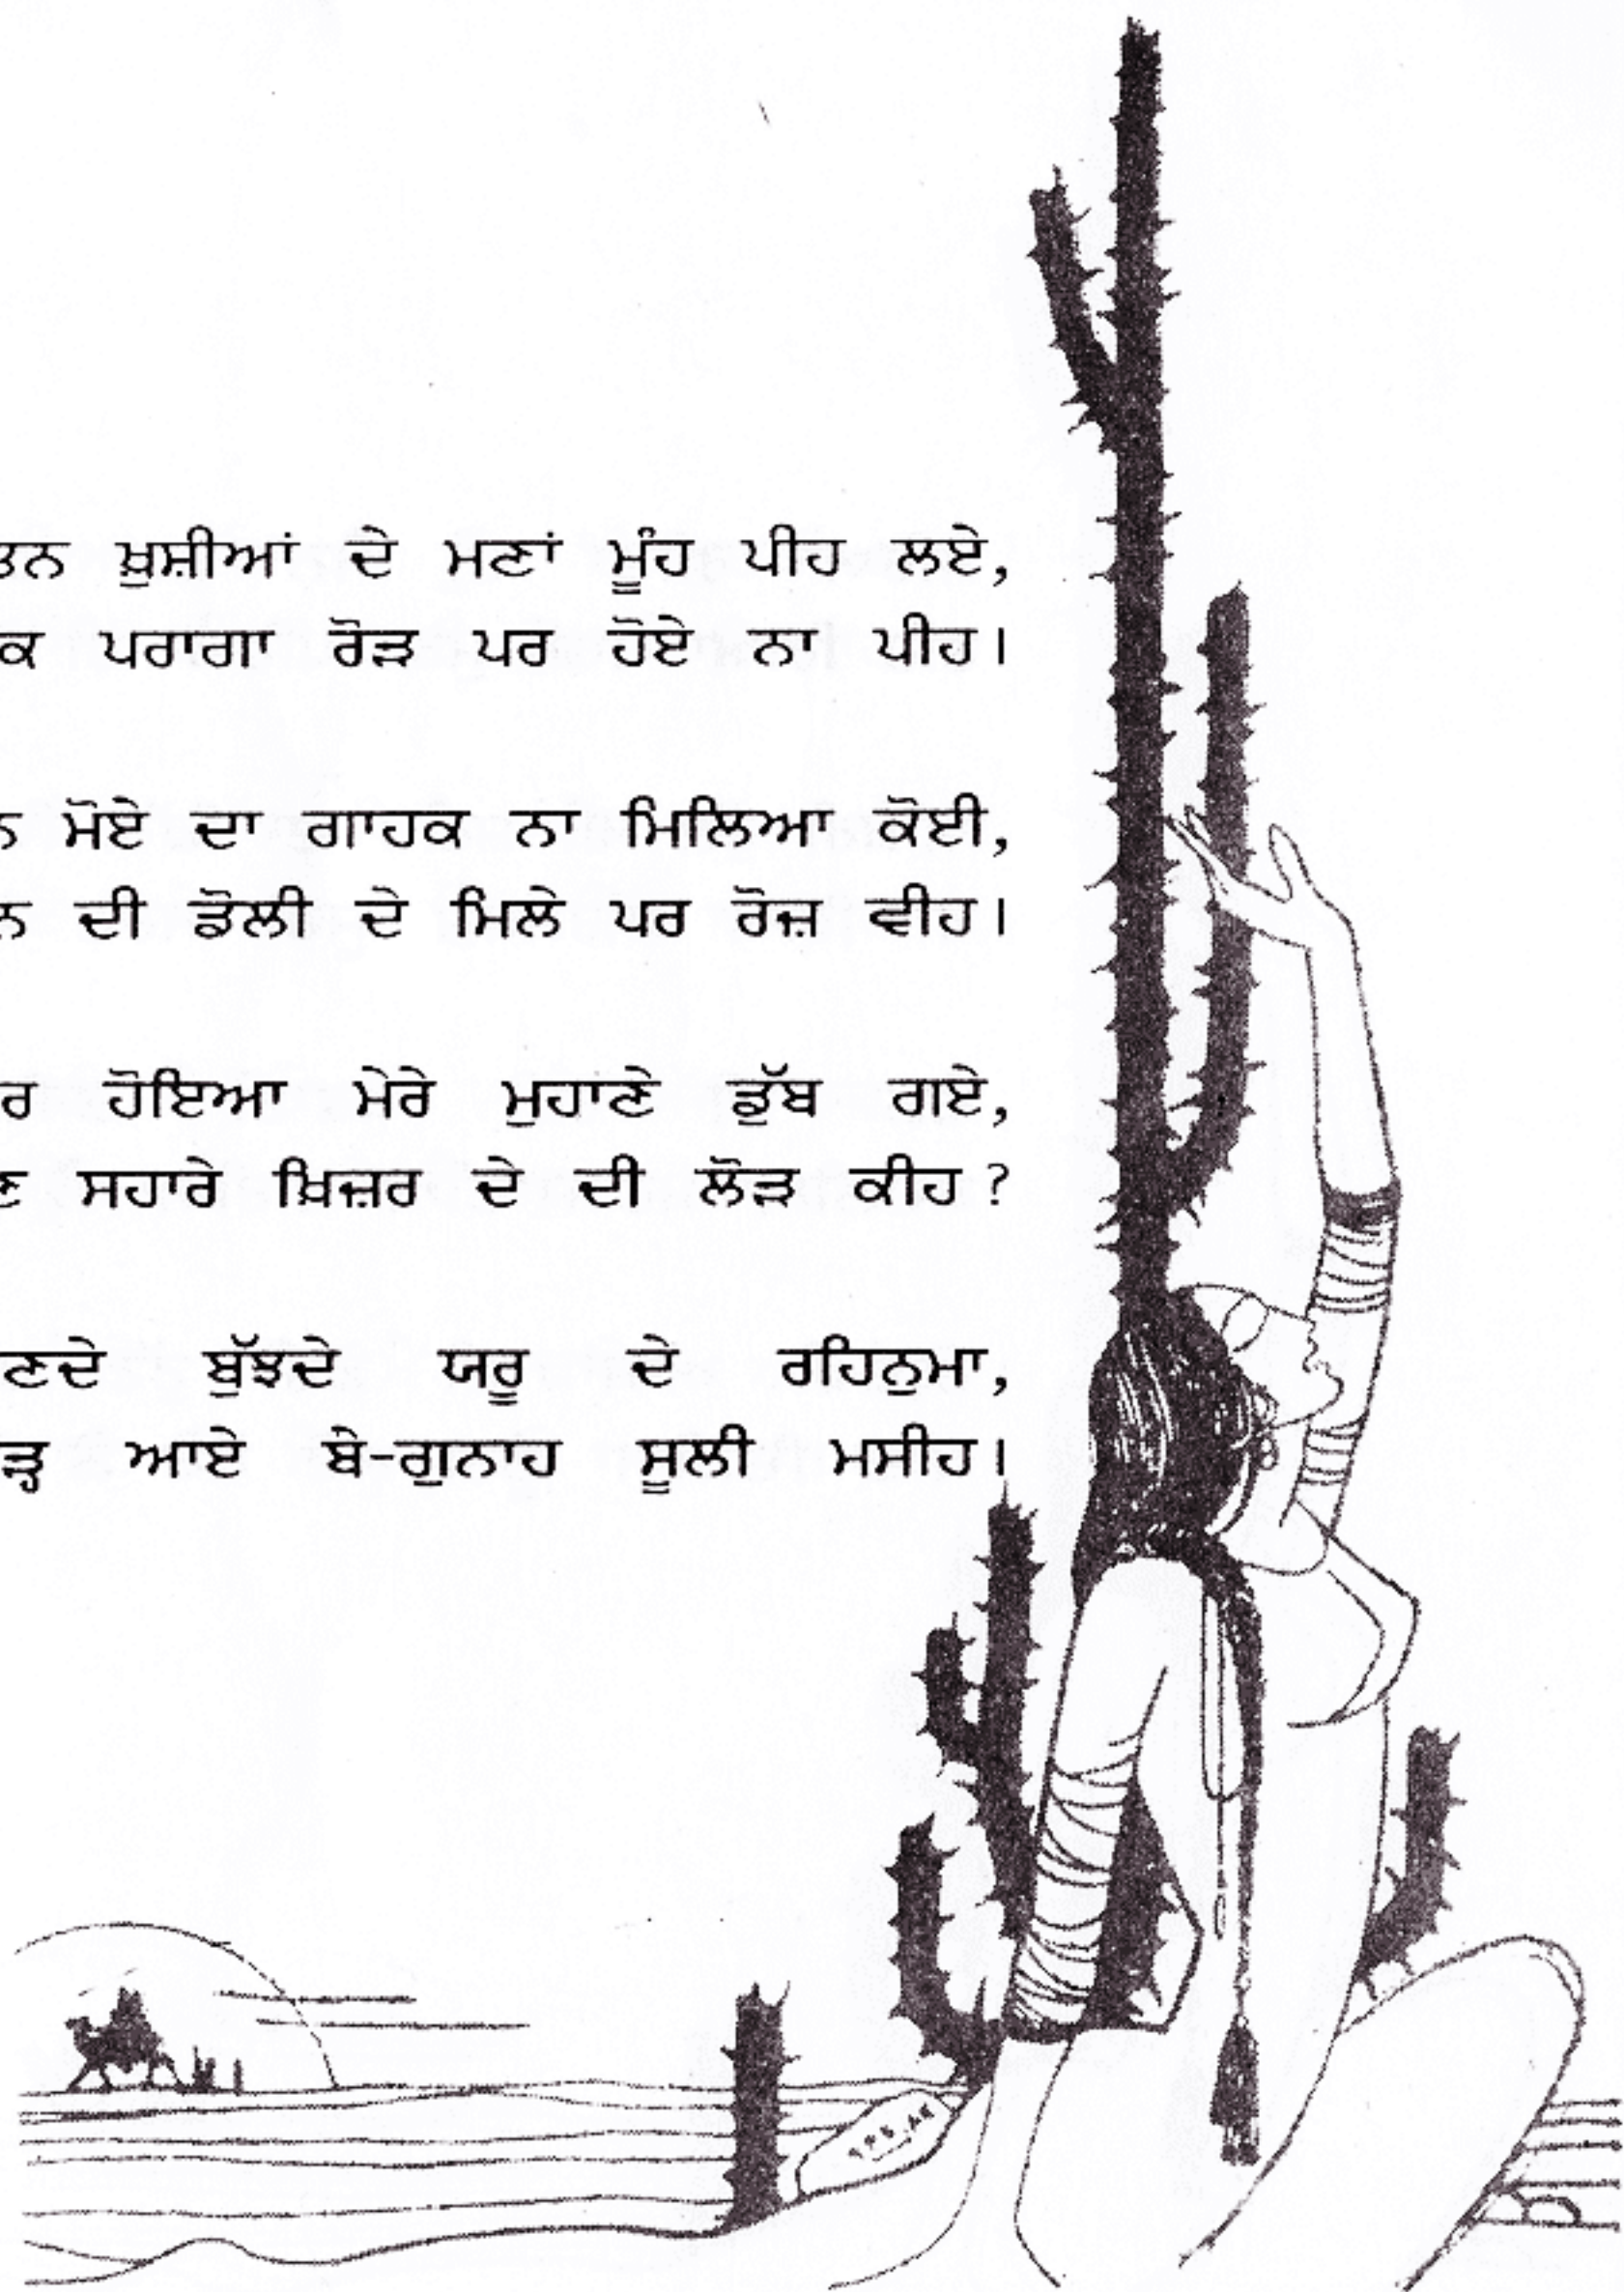 ਤਨ ਖ਼ੁਸ਼ੀਆਂ ਦੇ ਮਣਾਂ ਮੂੰਹ ਪੀਹ ਲਏ,
ਕ ਪਰਾਗਾ ਰੋੜ ਪਰ ਹੋਏ ਨਾ ਪੀਹ।
ਨ ਮੋਏ ਦਾ ਗਾਹਕ ਨਾ ਮਿਲਿਆ ਕੋਈ,
ਨ ਦੀ ਡੋਲੀ ਦੇ ਮਿਲੇ ਪਰ ਰੋਜ਼ ਵੀਹ।
ਰ ਹੋਇਆ ਮੇਰੇ ਮੁਹਾਣੇ ਡੁੱਬ ਗਏ,
ਣ ਸਹਾਰੇ ਖ਼ਿਜ਼ਰ ਦੇ ਦੀ ਲੋੜ ਕੀਹ ?
ਣਦੇ ਬੁੱਝਦੇ ਯਰੂ ਦੇ ਰਹਿਨੁਮਾ,
ੜ੍ਹ ਆਏ ਬੇ-ਗੁਨਾਹ ਸੂਲੀ ਮਸੀਹ।